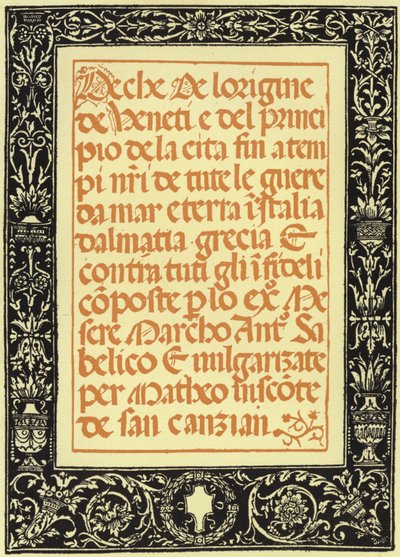 Deche De lorigine
de Veneti e del princi
pio de la cita fin a tem
pi nr̃i de tute le guere
da mar e terra ĩ Italia
dalmatia · grecia Et
contra tuti gli ĩfideli
cõposte p lo exº Me
sere Marcho Antº Sa
belico Et vulgarizate
per Matheo viscõte
de san canzian